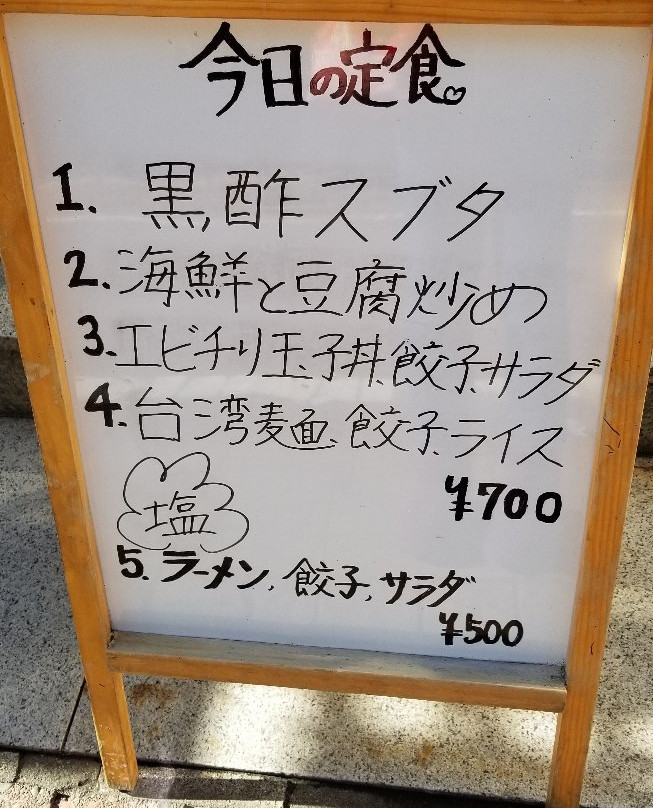 今日の定食♡
1. 黒酢スブタ
2. 海鮮と豆腐炒め
3. エビチリ玉子丼、餃子、サラダ
4. 台湾麺、餃子、ライス
¥700
塩
5. ラーメン、餃子、サラダ
¥500